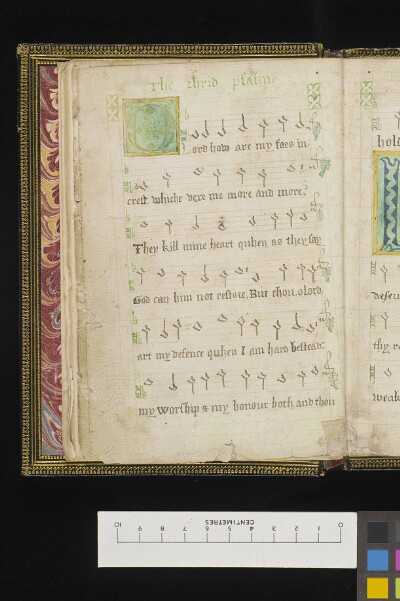 The thrid psalme
Lord how are my foes in
crest, whiche vexe me more and more?
They kill mine heart quhen as they say
God can him not restore. But thou, o Lord
art my defence quhen I am hard bestead:
my worship & my honour both, and thou
hold
defen
thy
weak
CENTIMETRES
0 1 2 3 4 5 6 7 8 9 10